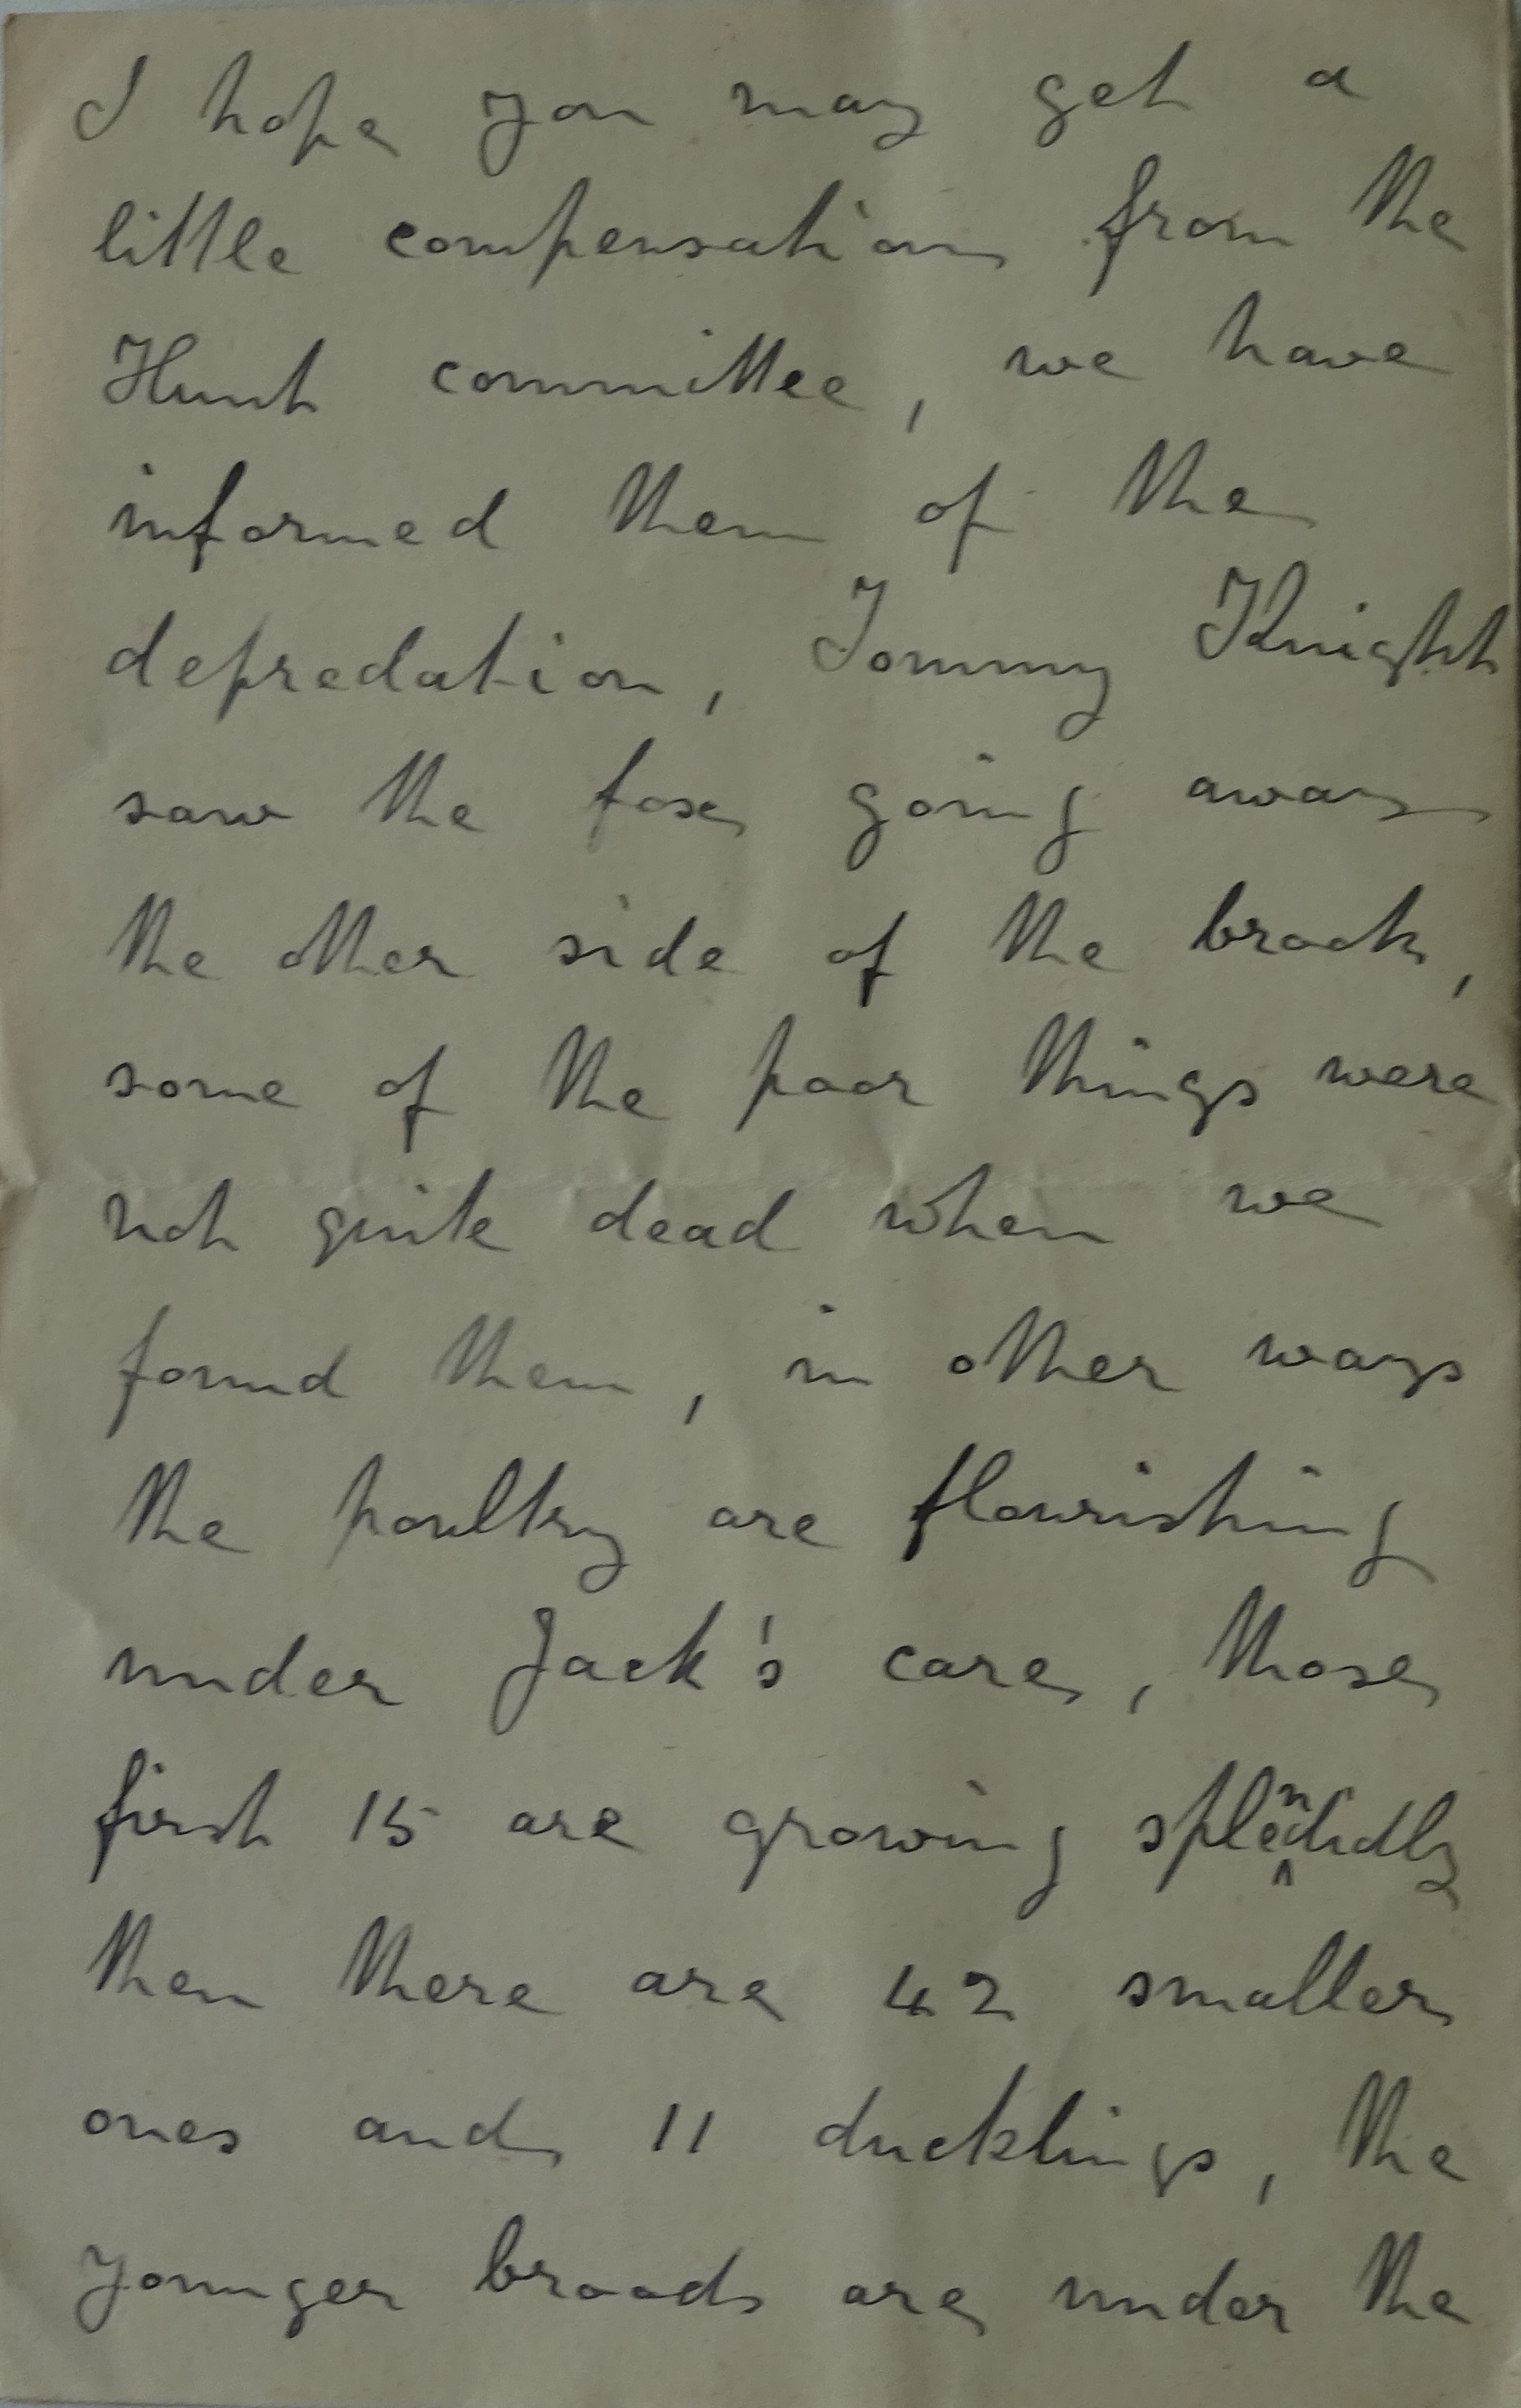 I hope you may get a
little compensation from the
Hunt committee, we have
informed them of the
depredation, Tommy Knight
saw the fox going away
the other side of the brook,
some of the poor things were
not quite dead when we
found them, in other ways
the poultry are flourishing
under Jack's care, those
first 15 are growing splendidly
then there are 42 smaller
ones and 11 ducklings, the
younger broods are under the